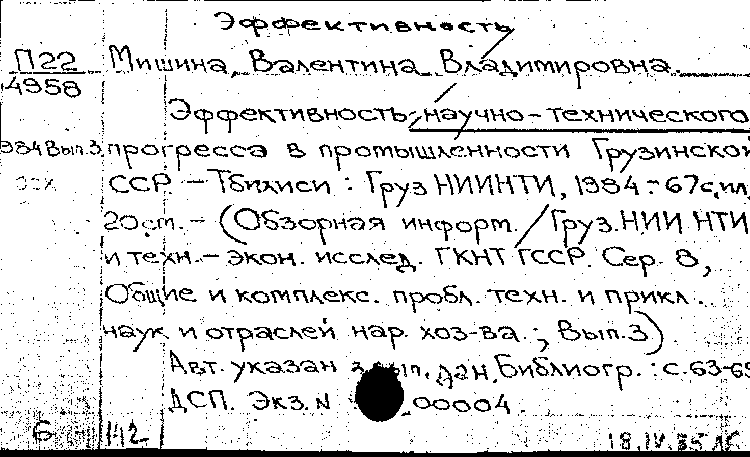 Эффективность
П22 Мишина, Валентина Владимировна.
4958
Эффективность научно-технического
984 Вып.3 прогресса в промышленности Грузинской
ССР. – Тбилиси : Груз НИИНТИ, 1984. – 67 с, ил
20 см. – (Обзорная информ. / Груз. НИИ НТИ
и техн.-экон. исслед. ГКНТ ГССР. Сер. 8,
Общие и комплекс. пробл. техн. и прикл.
наук и отраслей нар. хоз-ва.; Вып.3).
Авт. указан дан. Библиогр. : с. 63-65
ДСП. Экз. N 00004.
6 142 18.IV.85